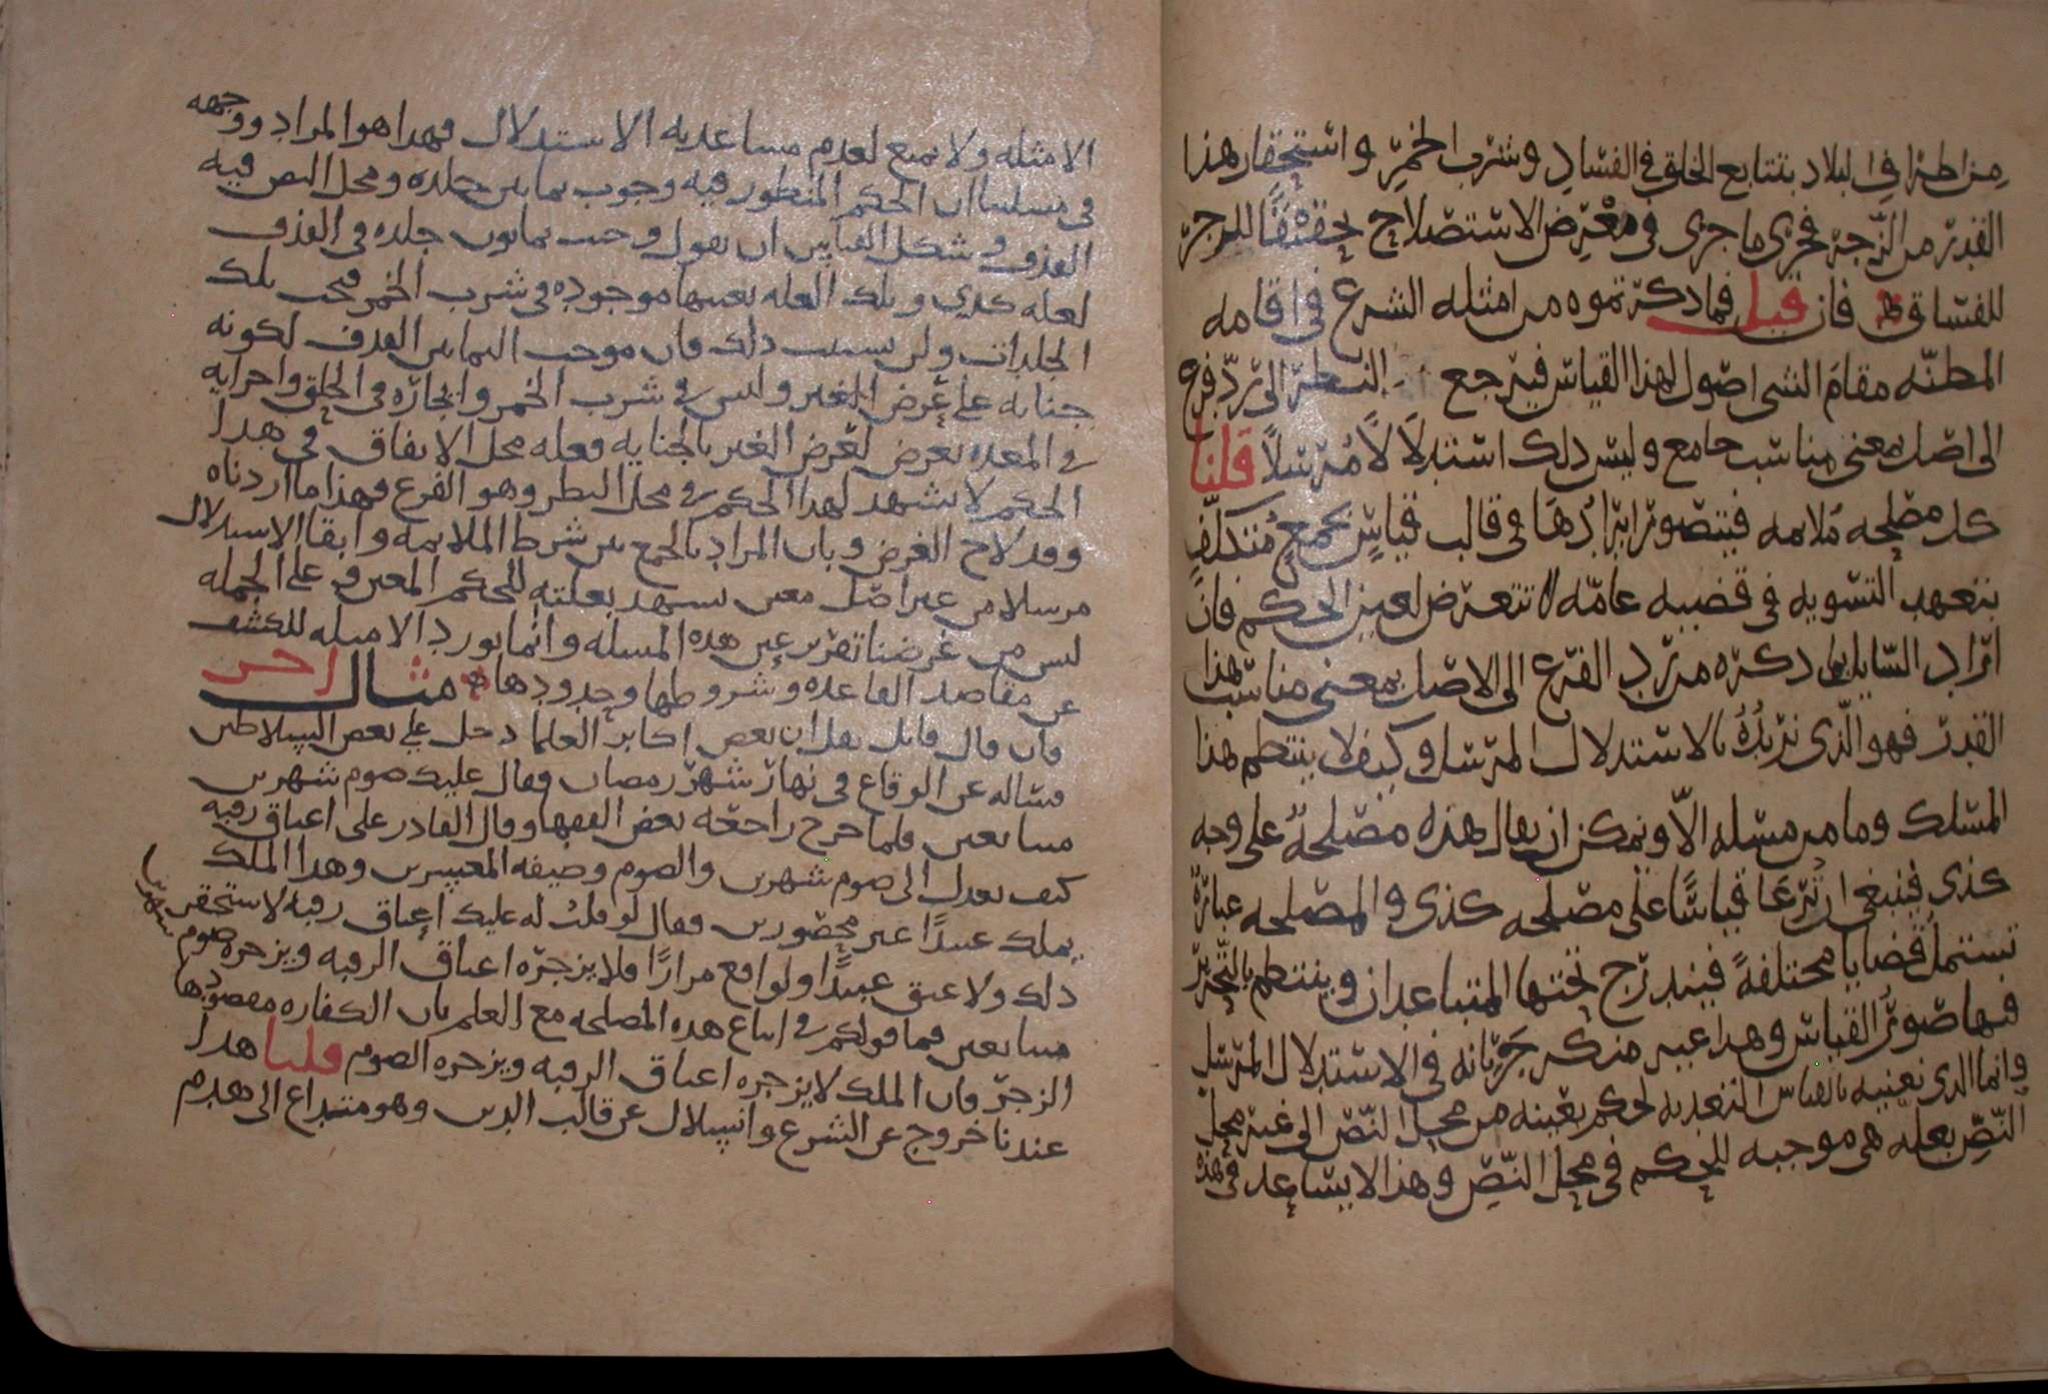 من اطرا في البلاد بتتابع الخلق في الفساد وشرب الخمر واستحقار هذا
القدر من الزجر فجرى ما جرى في معرض الاستصلاح تحقيقا للزجر
للفساق فان قيل فما ذكرتموه من امثله الشرع في اقامه
المظنه مقام الشى اصول لهذا القياس فيرجع النظر الى رد فرع
الى اصل بمعنى مناسب جامع وليس ذلك استدلالا مرسلا قلنا
كل مصلحه ملايمه فيتصور ايرادها في قالب قياس بجمع متكلف
يتعهد التسويه في قضيه عامه لا تتعرض لعين الحكم فان
اراد السايل بما ذكره من رد الفرع الى الاصل بمعنى مناسب هذا
القدر فهو الذى نريده بالاستدلال المرسل وكيف لا ينتظم هذا
المسلك وما من مسله الا ويمكن ان يقال هذه مصلحه على وجه
كذى فينبغى ان ترعا قياسا على مصلحه كذى والمصلحه عبارة
تشتمل قضايا مختلفة فيندرج تحتها المتباعدان وينتظم بالتحرير
فيها صور القياس وهذا غير منكر جريانه في الاستدلال المرسل
وانما الذى نعنيه بالقياس التعديه لحكم بعينه من محل النص الى غير محل
النص بعله هى موجبه للحكم في محل النص وهذا لا يساعد في هذه
الامثله ولا يمنع لعدم مساعدته الاستدلال فهذا هو المراد ووجهه
في مسلتنا ان الحكم المنظور فيه وجوب ثمانين جلده ومحل النص فيه
القذف وشكل القياس ان نقول وجب ثمانون جلده في القذف
لعله كذي وتلك العله بعينها موجوده في شرب الخمر فتجب تلك
الجلدات ولن يستتب ذلك فان موجب الثمانين القذف لكونه
جنايه على عرض الغير وليس في شرب الخمر وايجاره في الحلق واجرايه
في المعده تعرض لعرض الغير بالجنايه فعله محل الاتفاق في هذا
الحكم لا تشهد لهذا الحكم في محل النظر وهو الفرع فهذا ما اردناه
وقد لاح الغرض وبان المراد بالجمع بين شرط الملايمه وابقا الاستدلال
مرسلا من غير اصل معين يشهد بعلته للحكم المعين وعلى الجمله
ليس من غرضنا تقرير عين هذه المسله وانما نورد الامثله للكشف
عن مقاصد القاعده وشروطها وحدودها مثال اخر
فان قال قايل نقل ان بعض اكابر العلما دخل على بعض السلاطين
فساله عن الوقاع في نهار شهر رمضان فقال عليك صوم شهرين
متتابعين فلما خرج راجعه بعض الفقها وقال القادر على اعتاق رقبه
كيف يعدل الى صوم شهرين والصوم وظيفه المعسرين وهذا الملك
يملك عبيدا غير محصورين فقال لو قلت له عليك اعتاق رقبه لاستحقر
ذلك ولاعتق عبيدا ولواقع مرارا فلا يزجره اعتاق الرقبه ويزجره صوم
شهرين
متتابعين فما قولكم في اتباع هذه المصلحه مع العلم بان الكفاره مقصودها
الزجر فان الملك لا يزجره اعتاق الرقبه ويزجره الصوم قلنا هذا
عندنا خروج عن الشرع وانسلال عن قالب الدين وهو متداع الى هدم